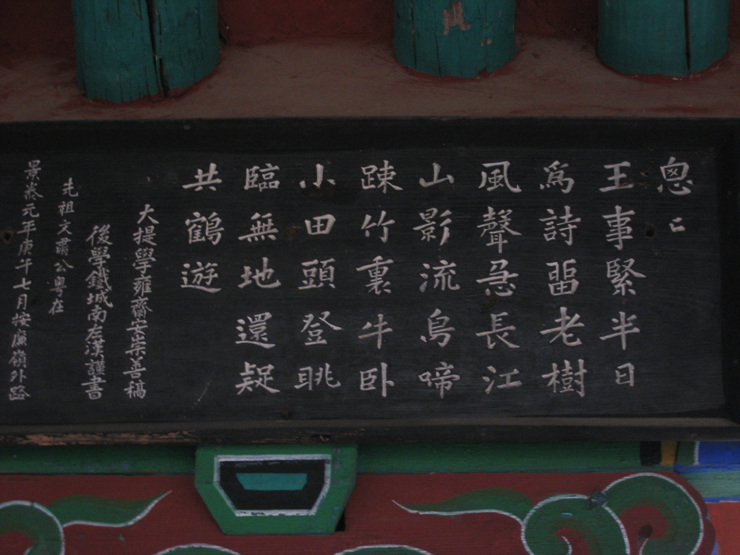 忩〻
王事緊半日
爲詩畱老樹
風聲急長江
山影流鳥啼
踈竹裏牛卧
小田頭登眺
臨無地還疑
共鶴遊
大提學雍齋安崇善稿
後學鐵城南左漢謹書
先祖文肅公粤在
景泰元年庚午七月按廉嶺外路